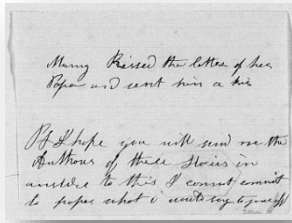 Mamy Kissed the letter of her
Papa and sent him a kiss
PS I hope you will send me the
Authors of these Stories in
answer to this I cannot commit
to paper what i would say to you